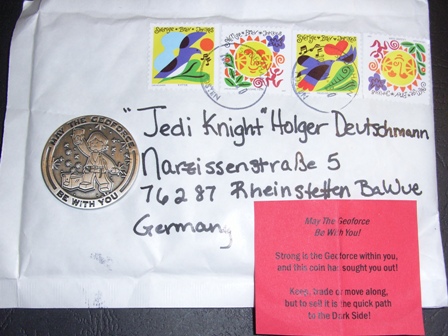 Sverige • Brev • Inrikes
Sverige • Brev • Inrikes
Sverige • Brev • Inrikes
"Jedi Knight" Holger Deutschmann
Narzissenstraße 5
76287 Rheinstetten BaWue
Germany
MAY THE GEOFORCE
BE WITH YOU
May The Geoforce
Be With You!
Strong is the Geoforce within you,
and this coin has sought you out!
Keep, trade or move along,
but to sell it is the quick path
to the Dark Side!